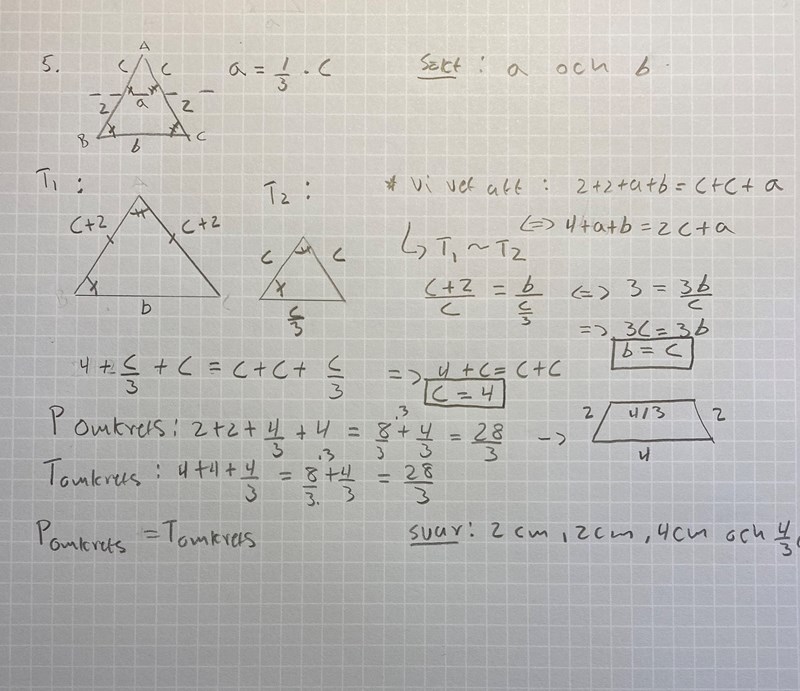 5.
A
C C
a = 1/3 · C
Sökt : a och b.
2 a 2
B b C
T1 :
T2 :
* Vi vet att : 2+2+a+b = C+C+a
<=> 4+a+b = 2C+a
↳ T1 ~ T2
C+2 C+2
b
C C
C/3
(C+2)/C = b/(C/3) <=> 3 = 3b/C
=> 3C = 3b
b = C
4 + C/3 + C = C + C + C/3 => 4 + C = C + C
C = 4
Pomkrets : 2+2+4/3+4 = 8/3 .3 + 4/3 = 28/3 ->
2 4/3 2
4
Tomkrets : 4+4+4/3 = 8/3. .3 + 4/3 = 28/3
Pomkrets = Tomkrets
svar : 2 cm, 2cm, 4cm och 4/3